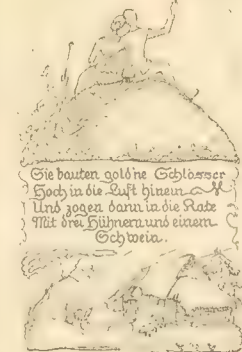 Sie bauten gold'ne Schlösser
Hoch in die Luft hinein
Und zogen dann in die Kate
Mit drei Hühnern und einem
Schwein.